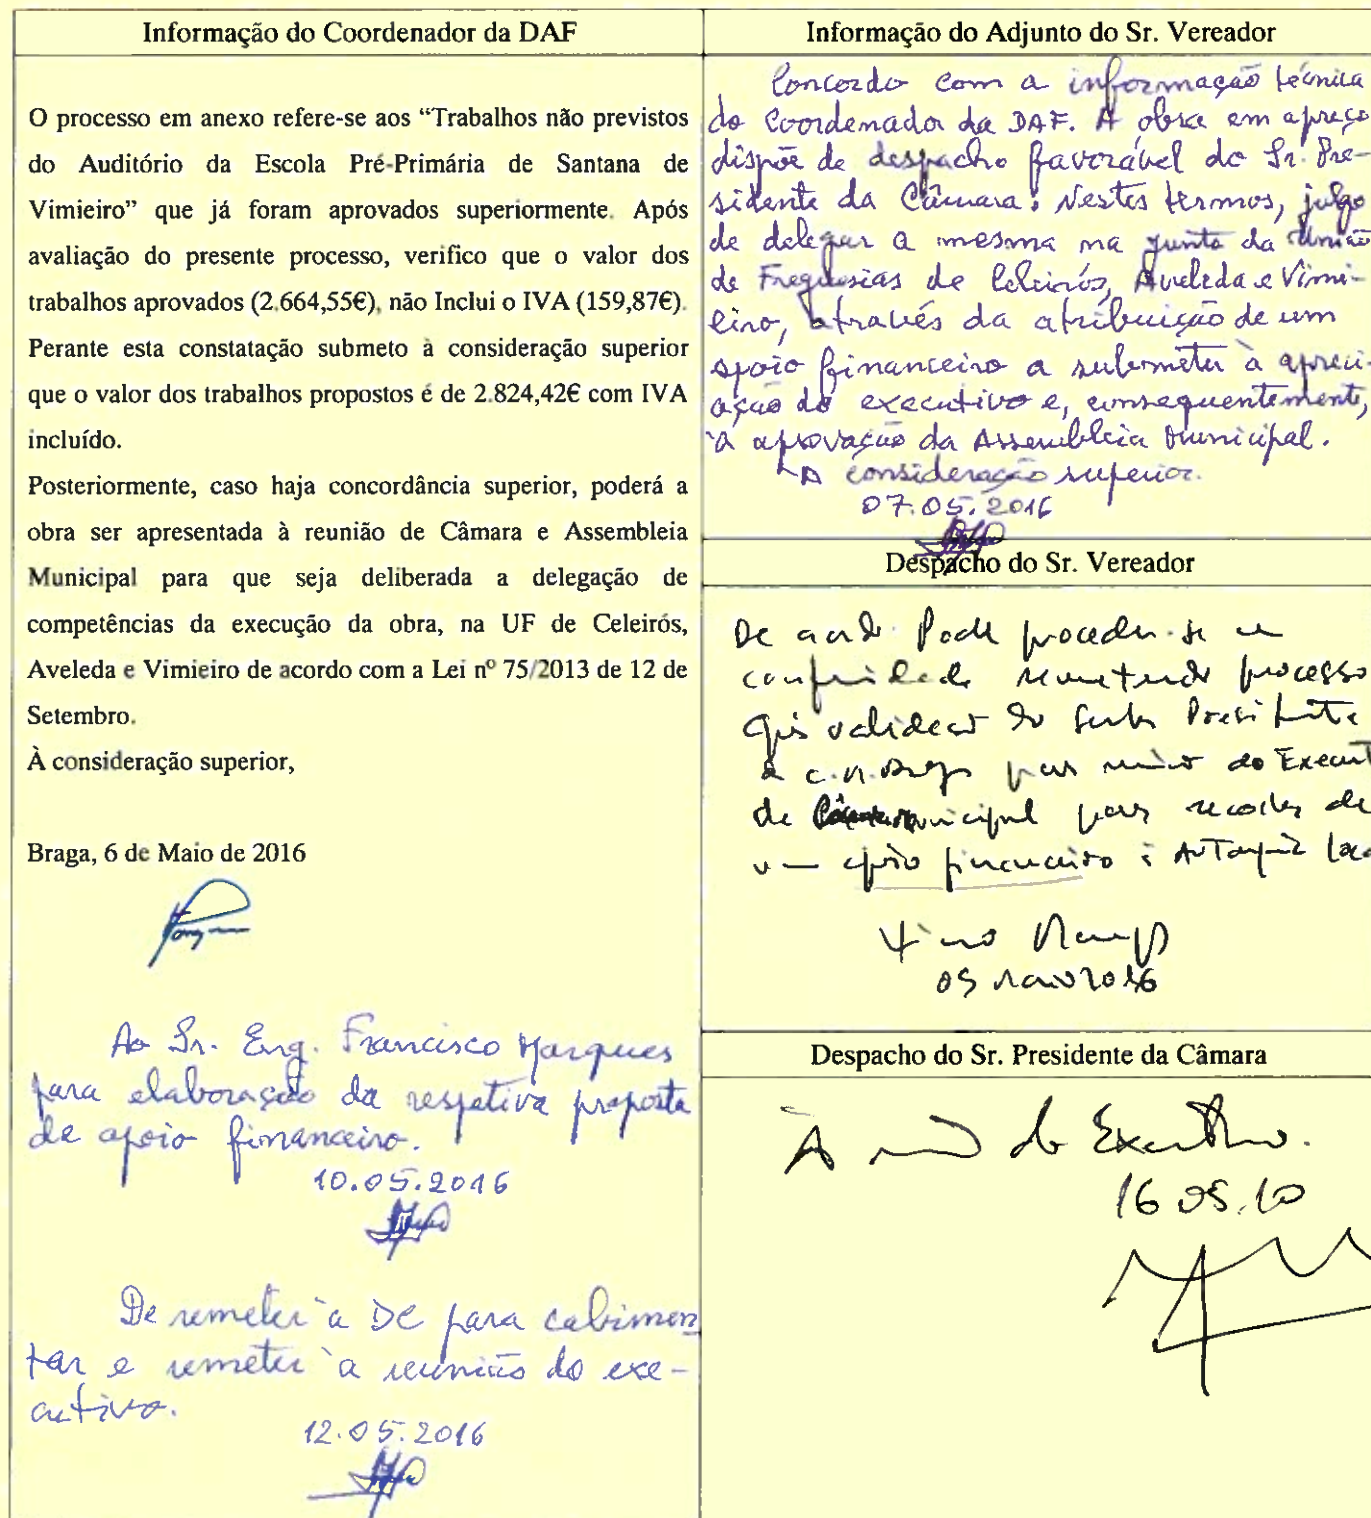 Informação do Coordenador da DAF
O processo em anexo refere-se aos “Trabalhos não previstos
do Auditório da Escola Pré-Primária de Santana de
Vimieiro” que já foram aprovados superiormente. Após
avaliação do presente processo, verifico que o valor dos
trabalhos aprovados (2.664,55€), não Inclui o IVA (159,87€).
Perante esta constatação submeto à consideração superior
que o valor dos trabalhos propostos é de 2.824,42€ com IVA
incluído.
Posteriormente, caso haja concordância superior, poderá a
obra ser apresentada à reunião de Câmara e Assembleia
Municipal para que seja deliberada a delegação de
competências da execução da obra, na UF de Celeirós,
Aveleda e Vimieiro de acordo com a Lei nº 75/2013 de 12 de
Setembro.
À consideração superior,
Braga, 6 de Maio de 2016
Ao Sr. Eng. Francisco Marques
para elaboração da respetiva proposta
de apoio financeiro.
10.05.2016
De remeter à DC para cabimen
tar e remeter à reunião do exe-
cutivo.
12.05.2016
Informação do Adjunto do Sr. Vereador
Concordo com a informação técnica
do Coordenador da DAF. A obra em apreço
dispõe de despacho favorável do Sr. Pre-
sidente da Câmara. Nestes termos, julgo
de delegar a mesma na Junta da União
de Freguesias de Celeirós, Aveleda e Vimi-
eiro, através da atribuição de um
apoio financeiro a submeter à apreci-
ação do executivo e, consequentemente,
à aprovação da Assembleia Municipal.
À consideração superior.
07.05.2016
Despacho do Sr. Vereador
De acordo. Pode proceder-se em
conformidade remetendo processo
após validação do Senhor Presidente
do Execut
de Municipal para de
um apoio financeiro à
maio 2016
Despacho do Sr. Presidente da Câmara
À do Executivo.
16.05.10